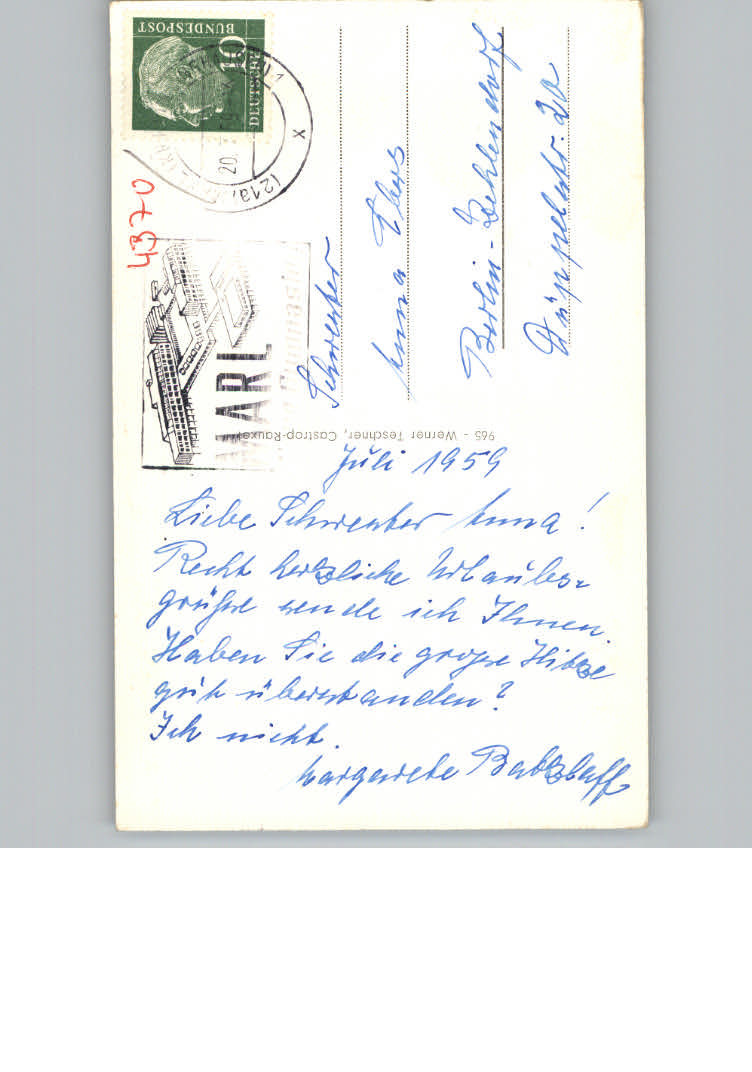 DEUTSCHE
BUNDESPOST
10
(21a)
20.
59
x
0784
MARL
Schwester
Anna Ebers
Berlin-Zehlendorf
Düppelstr. 20
965 - Werner Teschner, Castrop-Rauxel
Juli 1959
Liebe Schwester Anna!
Recht herzliche Urlaubs-
grüße sende ich Ihnen.
Haben Sie die große Hitze
gut überstanden?
Ich nicht.
Margarete